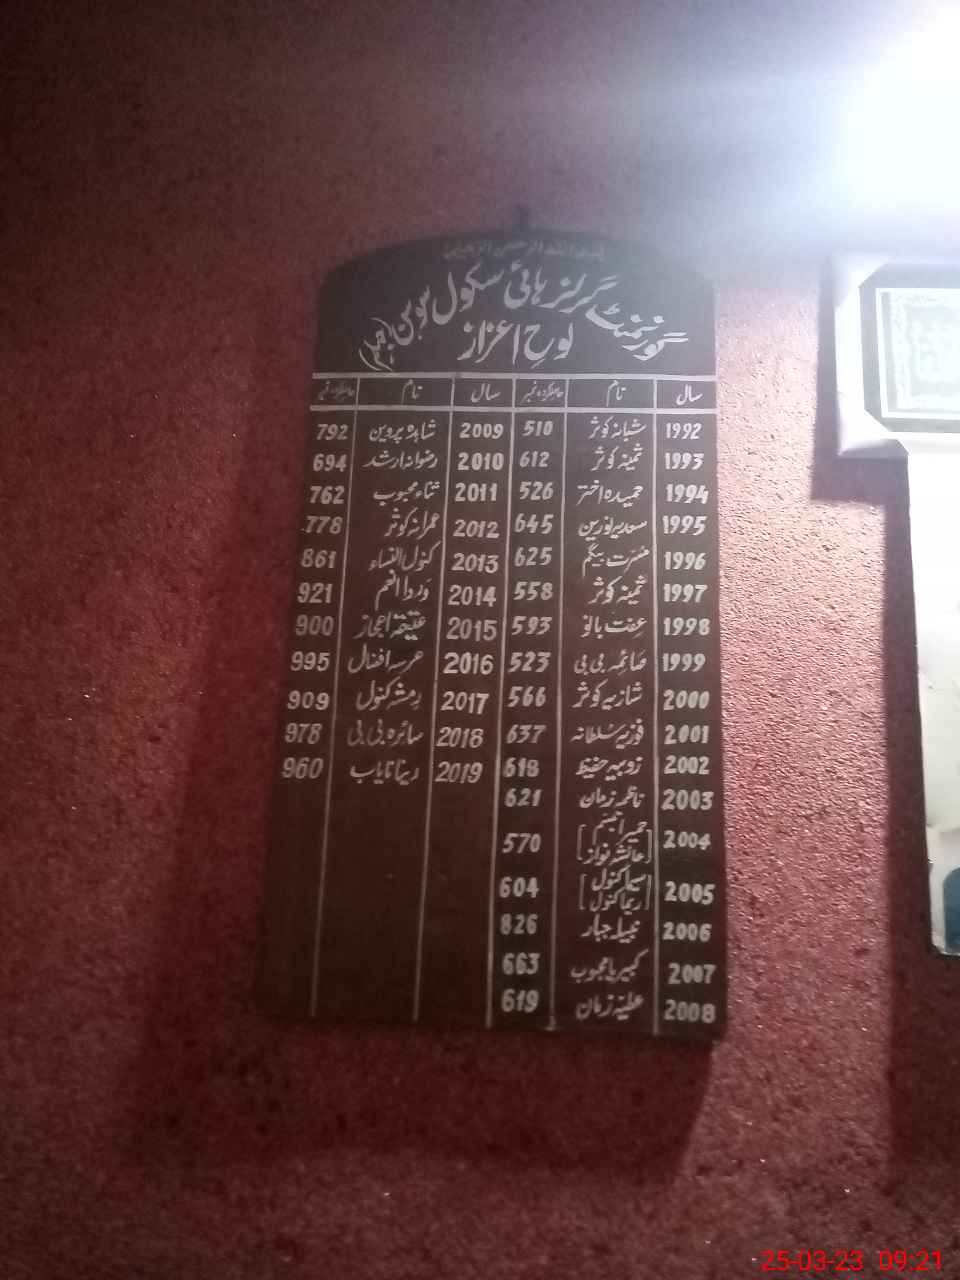 بسم اللہ الرحمن الرحیم
گورنمنٹ گرلز ہائی سکول سوہن (جہلم)
لوحِ اعزاز
سال نام حاصلکردہ نمبر سال نام حاصلکردہ نمبر
1992 شبانہ کوثر 510 2009 شاہدہ پروین 792
1993 ثمینہ کوثر 612 2010 رضوانہ ارشد 694
1994 حمیدہ اختر 526 2011 ثناء محبوب 762
1995 سعدیہ نورین 645 2012 عمرانہ کوثر 778
1996 مسرت بیگم 625 2013 کنول النساء 861
1997 ثمینہ کوثر 558 2014 وردا انعم 921
1998 عفت بانو 593 2015 عتیقہ اعجاز 900
1999 صائمہ بی بی 523 2016 عرسہ افضال 995
2000 شازیہ کوثر 566 2017 رمشہ کنول 909
2001 فوزیہ سلطانہ 637 2018 سائرہ بی بی 978
2002 زوبیہ حفیظ 618 2019 دینا نایاب 960
2003 ناظمہ زمان 621
2004 [حمیرا تبسم عائشہ نواز] 570
2005 [سیما کنول ریما کنول] 604
2006 نبیلہ جبار 826
2007 کبیریا محبوب 663
2008 عطیہ زمان 619
25-03-23 09:21